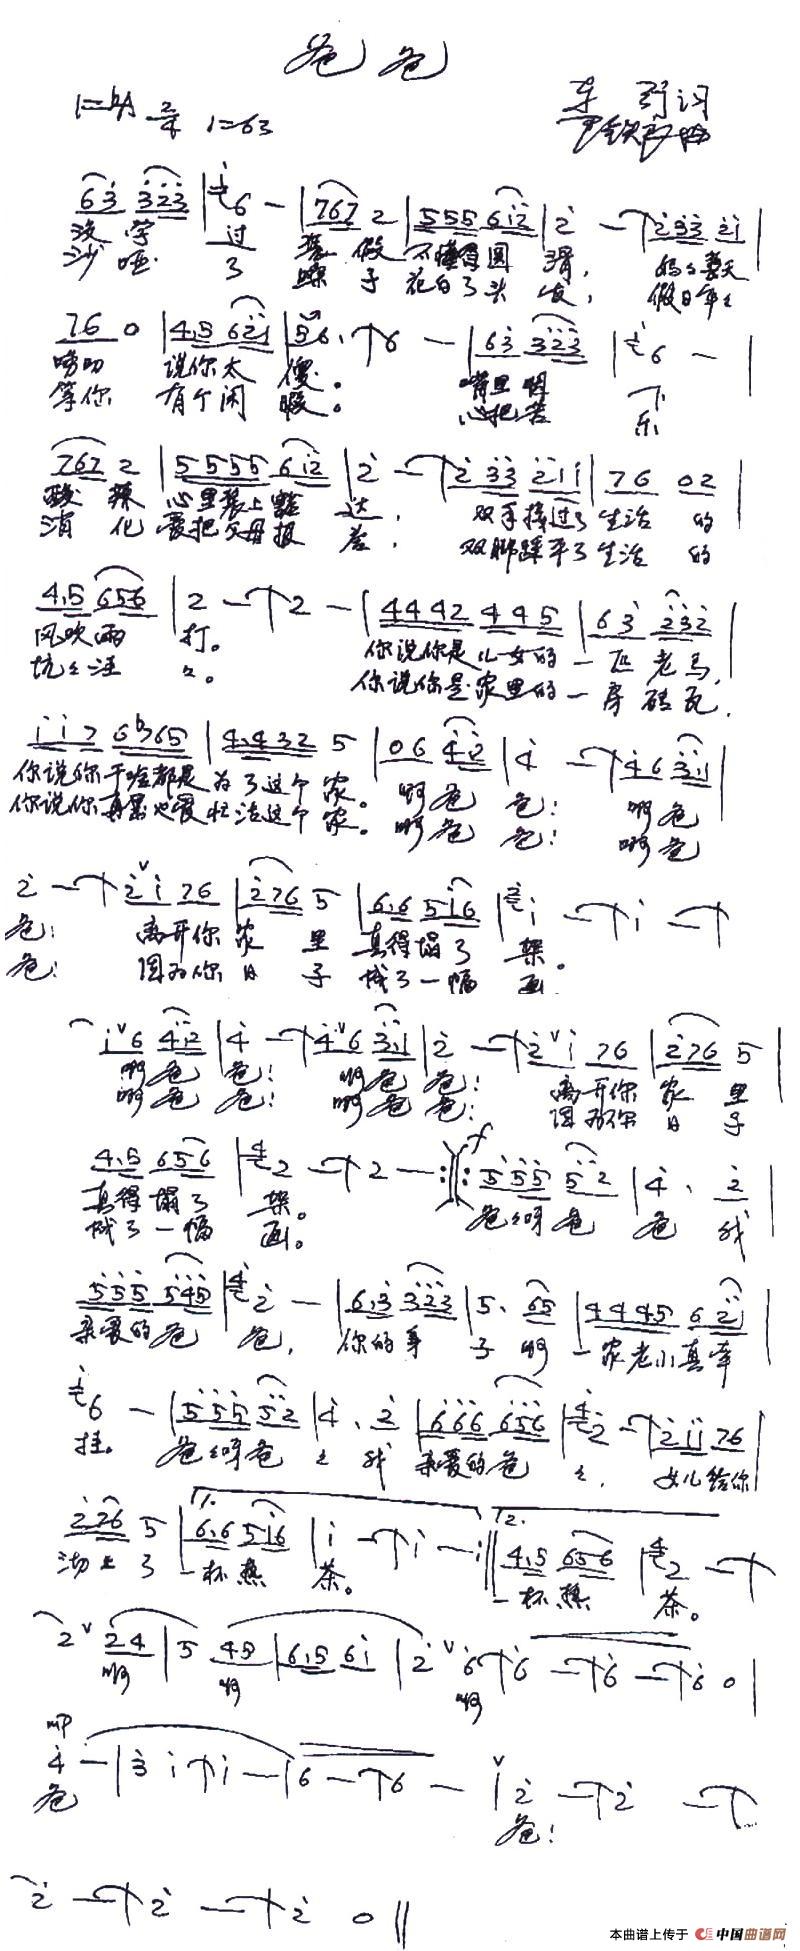 爸爸
1=♭A 2/4 1=63
车 词
曲
63 323 6 — 767 2 555 612 2 — 233 21
没学 过 装 假 不懂得圆 滑, 妈妈整天
沙哑 了 嗓 子 花白了头 发, 假日年年
76 0 4.5 621 56. 6 — 63 323 6 —
唠叨 说你太 傻。 嘴里咽 下
等你 有个闲 暇。 心把苦 乐
767 2 5555 612 2 — 233 211 76 02
酸 辣 心里装上豁 达, 双手接过了生活 的
消 化 爱把父母报 答, 双脚踩平了生活 的
4.5 656 2 — 2 — 4442 445 63 232
风吹雨 打。 你说你是儿女的一匹老马,
坑坑洼 洼。 你说你是家里的一房砖瓦,
117 6♭765 4.432 5 06 42 4 — 46 3.1
你说你干啥都是为了这个家。 啊爸 爸! 啊爸
你说你再累也爱忙活这个家。 啊爸 爸! 啊爸
2 — 21 76 276 5 6.6 516 1 — 1 —
爸! 离开你家 里真得塌了 架。
爸! 因为你日 子成了一幅 画
16 4.2 4 — 46 3.1 2 — 21 76 276 5
啊爸 爸! 啊爸 爸! 离开你 家 里
啊爸 爸! 啊爸 爸! 因为你 日 子
4.5 656 2 — 2 — f 555 52 4. 2
真得塌了 架。 爸爸呀爸 爸 我
成了一幅 画。
555 545 2 — 6.3 323 5. 65 4445 621
亲爱的爸 爸, 你的身 子 啊 一家老小真牵
6 — 555 52 4. 2 666 656 2 — 211 76
挂。 爸爸呀爸 爸 我 亲爱的爸 爸, 女儿给你
2.26 5 1. 6.6 516 1 — 1 — 2. 4.5 656 2 —
沏上了 一杯热 茶。 一杯热 茶。
2 24 5 45 6.5 61 2 6 6 — 6 — 6 0
啊 啊 啊
mp
4 — 3 1 1 — 6 — 6 — 2 — 2 —
爸 爸!
2 — 2 — 2 0
本曲谱上传于 中国曲谱网